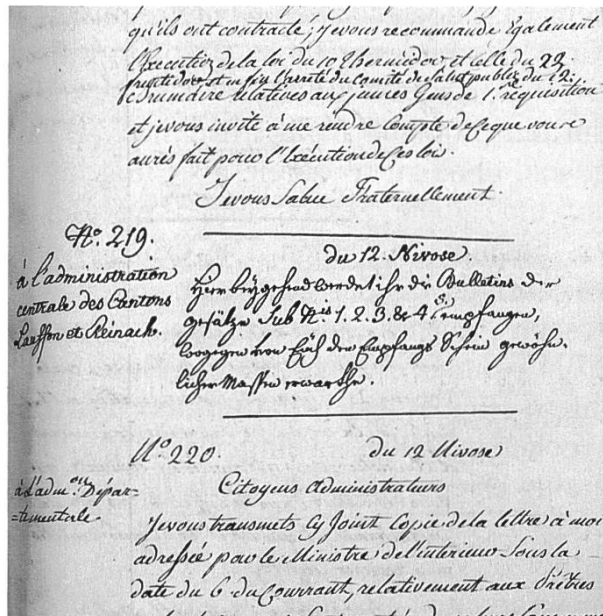 qu'ils ont contracté; je vous recommande également
l'Execution de la loi du 10 Thermidor et celle du 23
fructidor et enfin l'arreté du Comité de Salut public du 12
Brumaire relatives aux jeunes Gens de 1.re requisition
et je vous invite à me rendre Compte de Ceque vous
aurés fait pour l'Exécution de Ces loix.
Je vous Salue Fraternellement.
N.o 219.
à l'administration
centrale des Cantons
Lauffon et Reinach.
du 12. Nivose.
Hierbeÿgehend werdet ihr die Bulletins der
gesätze Sub N.is 1. 2. 3. & 4. empfangen,
wogegen von Eüch den Empfangs Schein gewöhn-
licher Massen erwarthe.
N.o 220.
du 12 Nivose
à l'adm.on Dépar-
-tementale
Citoyens Administrateurs
Je vous transmets Cy Joint Copie de la lettre à moi
adressée par le Ministre de l'interieur Sous la
date du 6 du Courrant, relativement aux Prêtres